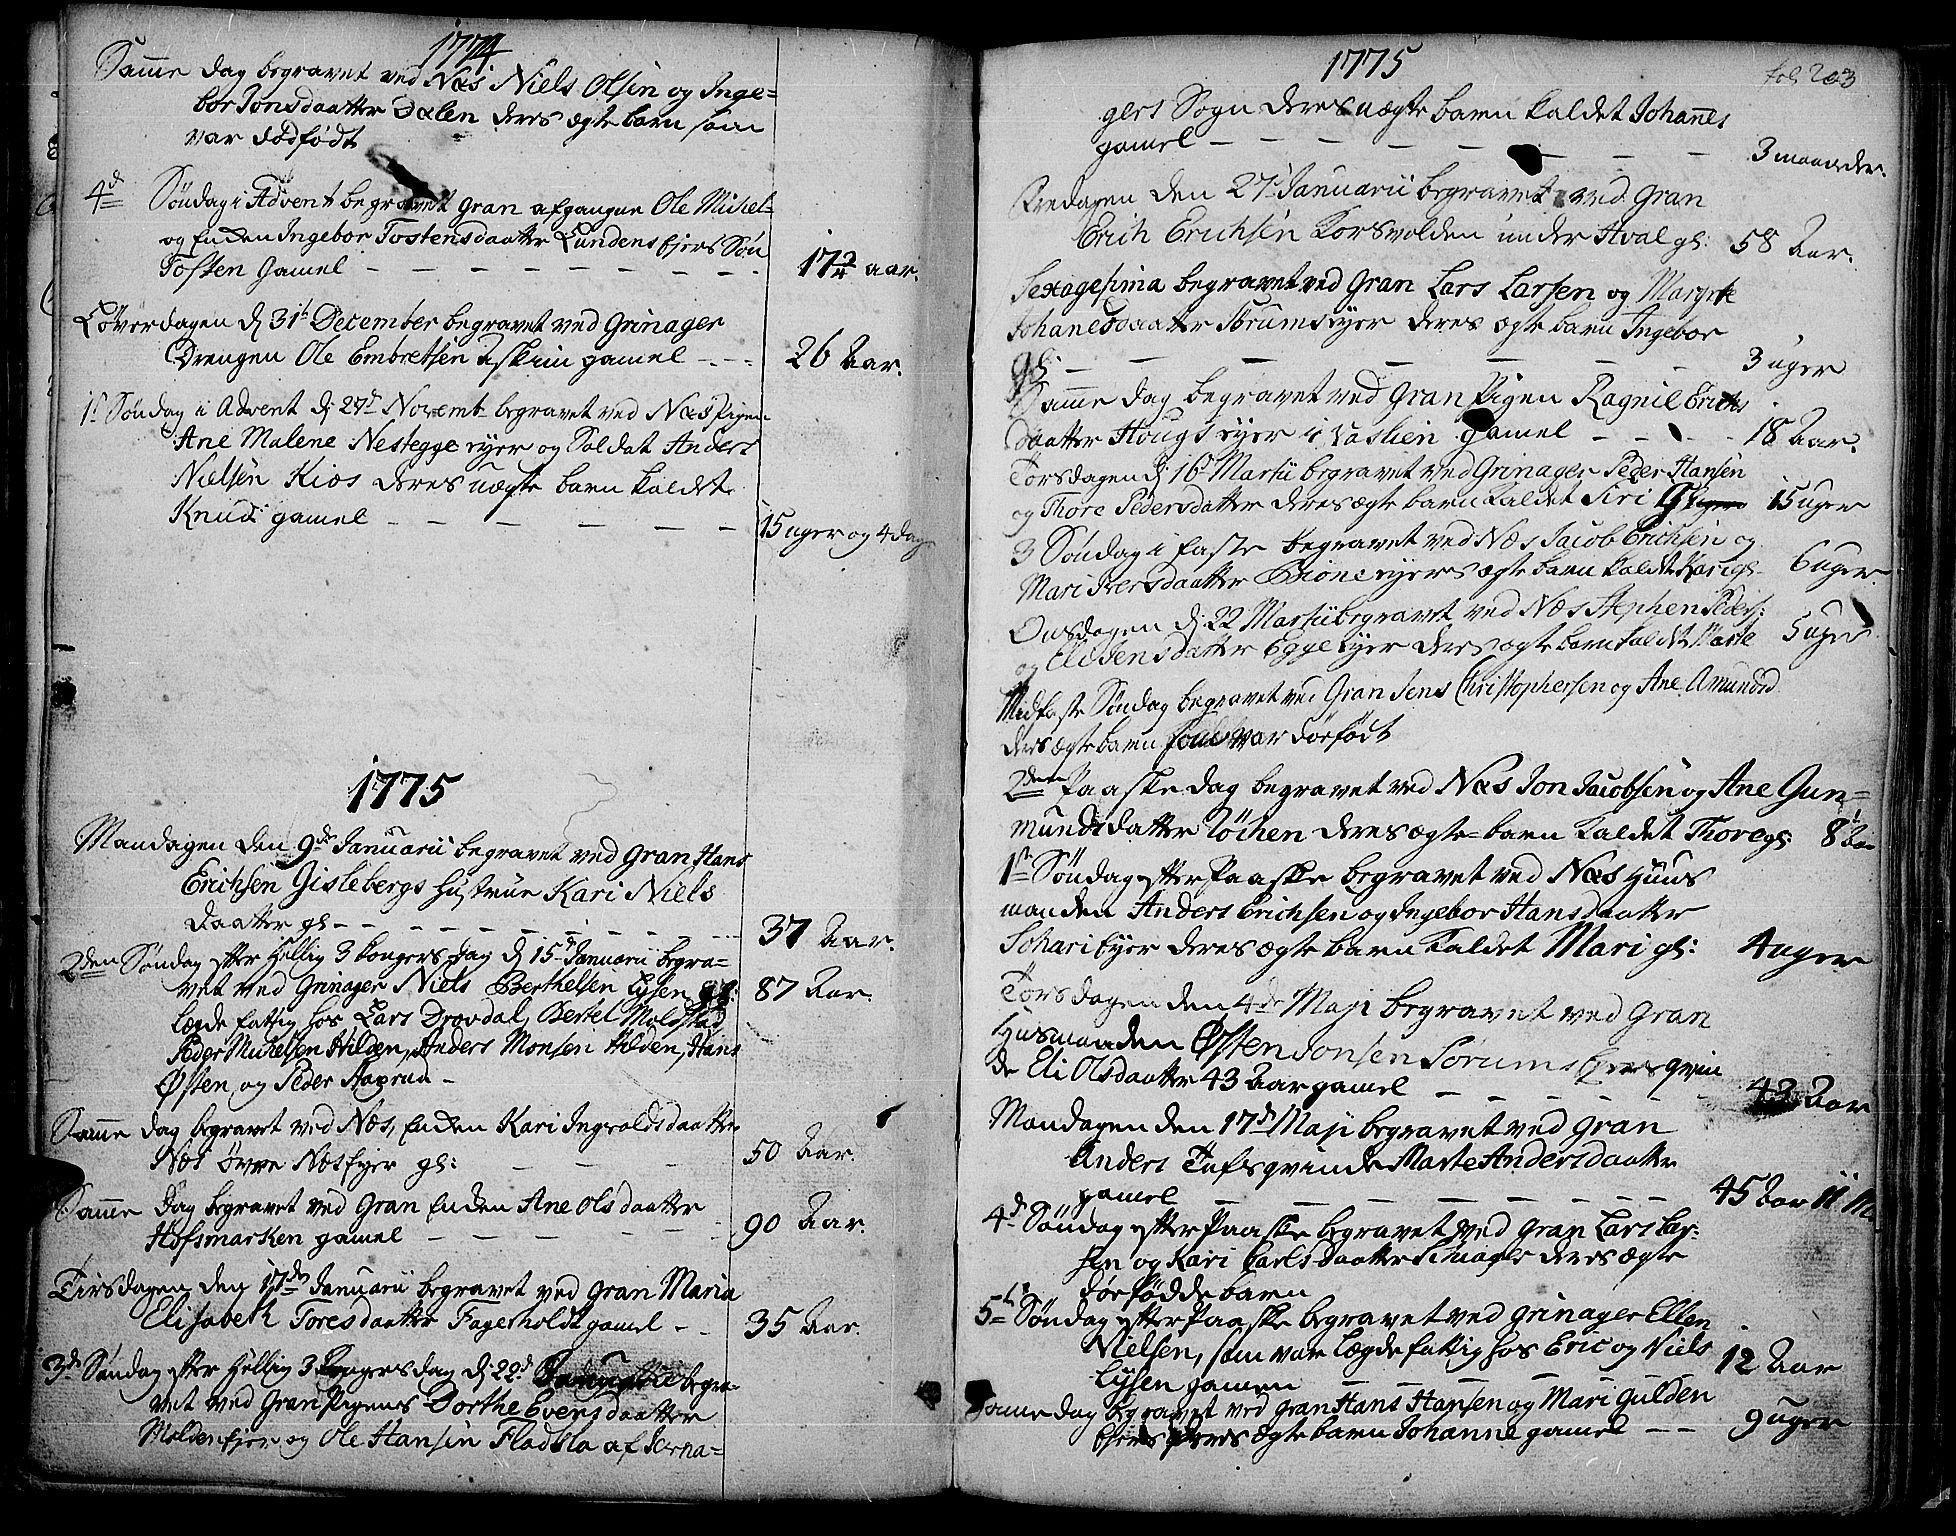 1774
Samme dag begravet ved Næs Niels Olsen og Inge=
bor Jonsdaatter Dælen deres ægte barn som
var dødfødt
4d Søndag i Advent begravet Gran afgangne Ole Michel-
og Enken Ingebor Tostensdaatter Lundens Ejers Søn
Tosten gamel - - - - - - - - - 17 3/4 aar.
Løverdagen d 31t December begravet ved Grinager
Drengen Ole Embretsen Askim gamel - - - 26 Aar.
1t Søndag i Advent d: 27d Novemb begravet ved Næs Pigen
Ane Malene Nestegge ejer og Soldat Anders
Nielsen Kios deres uægte barn kaldet
Knud gamel - - - - - - - 15 uger og 4 dag
1775
Mandagen den 9de Januarii begravet ved Gran Hans
Erichsen Gislebergs Hustrue Kari Niels
daatter gl - - - - - - - - 37 Aar.
2den Søndag efter Hellig 3 Kongers dag d 15d Januarii begra=
vet ved Grinager Niels Berthelsen Lysen gl: 87 Aar.
lægde fattig hos Lars Drovdal, Bertel Moldstad
Peder Michelsen Hilden, Anders Monsen Hilden, Hans
Østen og Peder Haprud -
Samme dag begravet ved Næs, Enken Kari Ingvoldsdaatter
Næs øvre Næs Ejer gl: - - - 50 Aar.
Samme Dag begravet ved Gran Enken Ane Olsdaatter
Hofsmarken gamel - - - - - 90 Aar.
Tirsdagen den 17de Januarii begravet ved Gran Maria
Elisabeth Toresdaatter Fagerholdt gamel - - 35 Aar.
3d Søndag efter Hellig 3 Kongersdag d: 22d Januarii begra=
vet ved Gran Pigens Dorthe Evensdaatter
Molden Ejer og Ole Hansen Fladsla af Jevna=
1775
fol 203
gers Sogn deres uægte barn kaldet Johannes
gamel - - - - - - - 3 maaneder.
Fredagen den 27 Januarii begravet ved Gran
Erich Erichsen Korsvolden under Hval gl: 58 Aar.
Sexagesima begravet ved Gran Lars Larsen og Margrete
Johanesdaatter ejer deres ægte barn Ingebor
gl: - - - - - - 3 uger
Samme dag begravet ved Gran Pigen Ragnil Erichs
daatter Hougs ejer i gamel - - - - 18 Aar.
Torsdagen d 16 Martii begravet ved Grinager Peder Hansen
og Thore Pedersdaatter deres ægte barn kaldet Siri gl 15 uger
3 Søndag i Faste begravet ved Næs Jacob Erichsen og
Mari Iversdaatter ejers ægte barn kaldet Kari gl 6 uger
Onsdagen d: 22 Martii begravet ved Næs Stephen Peders:
og Elisensdaatter Egge ejer deres ægte barn kaldet Marte 5 uger
Midfaste Søndag begravet ved Gran Jens Christophersen og Ane Amundsd
deres ægte barn som var dørfødt
2den Paaske dag begravet ved Næs Jon Jacobsen og Ane Gun=
mundsdatter deres ægte barn kaldet Thore gl: 8
1ste Søndag efter Paaske begravet ved Næs Huus
manden Anders Erichsen og Ingebor Hansdaatter
ejer deres ægte barn kaldet Mari gl: 4 uger
Torsdagen den 4de Maji begravet ved Gran
Husmanden Østen Jonsen Sørums Ejers qvin
de Eli Olsdaatter 43 Aar gamel - - - - 43 Aar
Mandagen den 17d Maji begravet ved Gran
Anders Tofs qvinde Marte Andersdaatter
gamel - - - - - - - - 45 Aar 11 M
4d Søndag efter Paaske begravet ved Gran Lars Lar-
sen og Kari Carlsdaatter deres ægte
dørfødde barn
5te Søndag efter Paaske begravet ved Grinager Ellen
Nielsen, som var Lægdefattig hos Eric og Niels
Lysen gamen - - - - - - - 12 Aar
Samme dag begravet ved Gran Hans Hansen og Mari Gulden
Ejers deres ægte barn Johanne gamel - - 9 uger